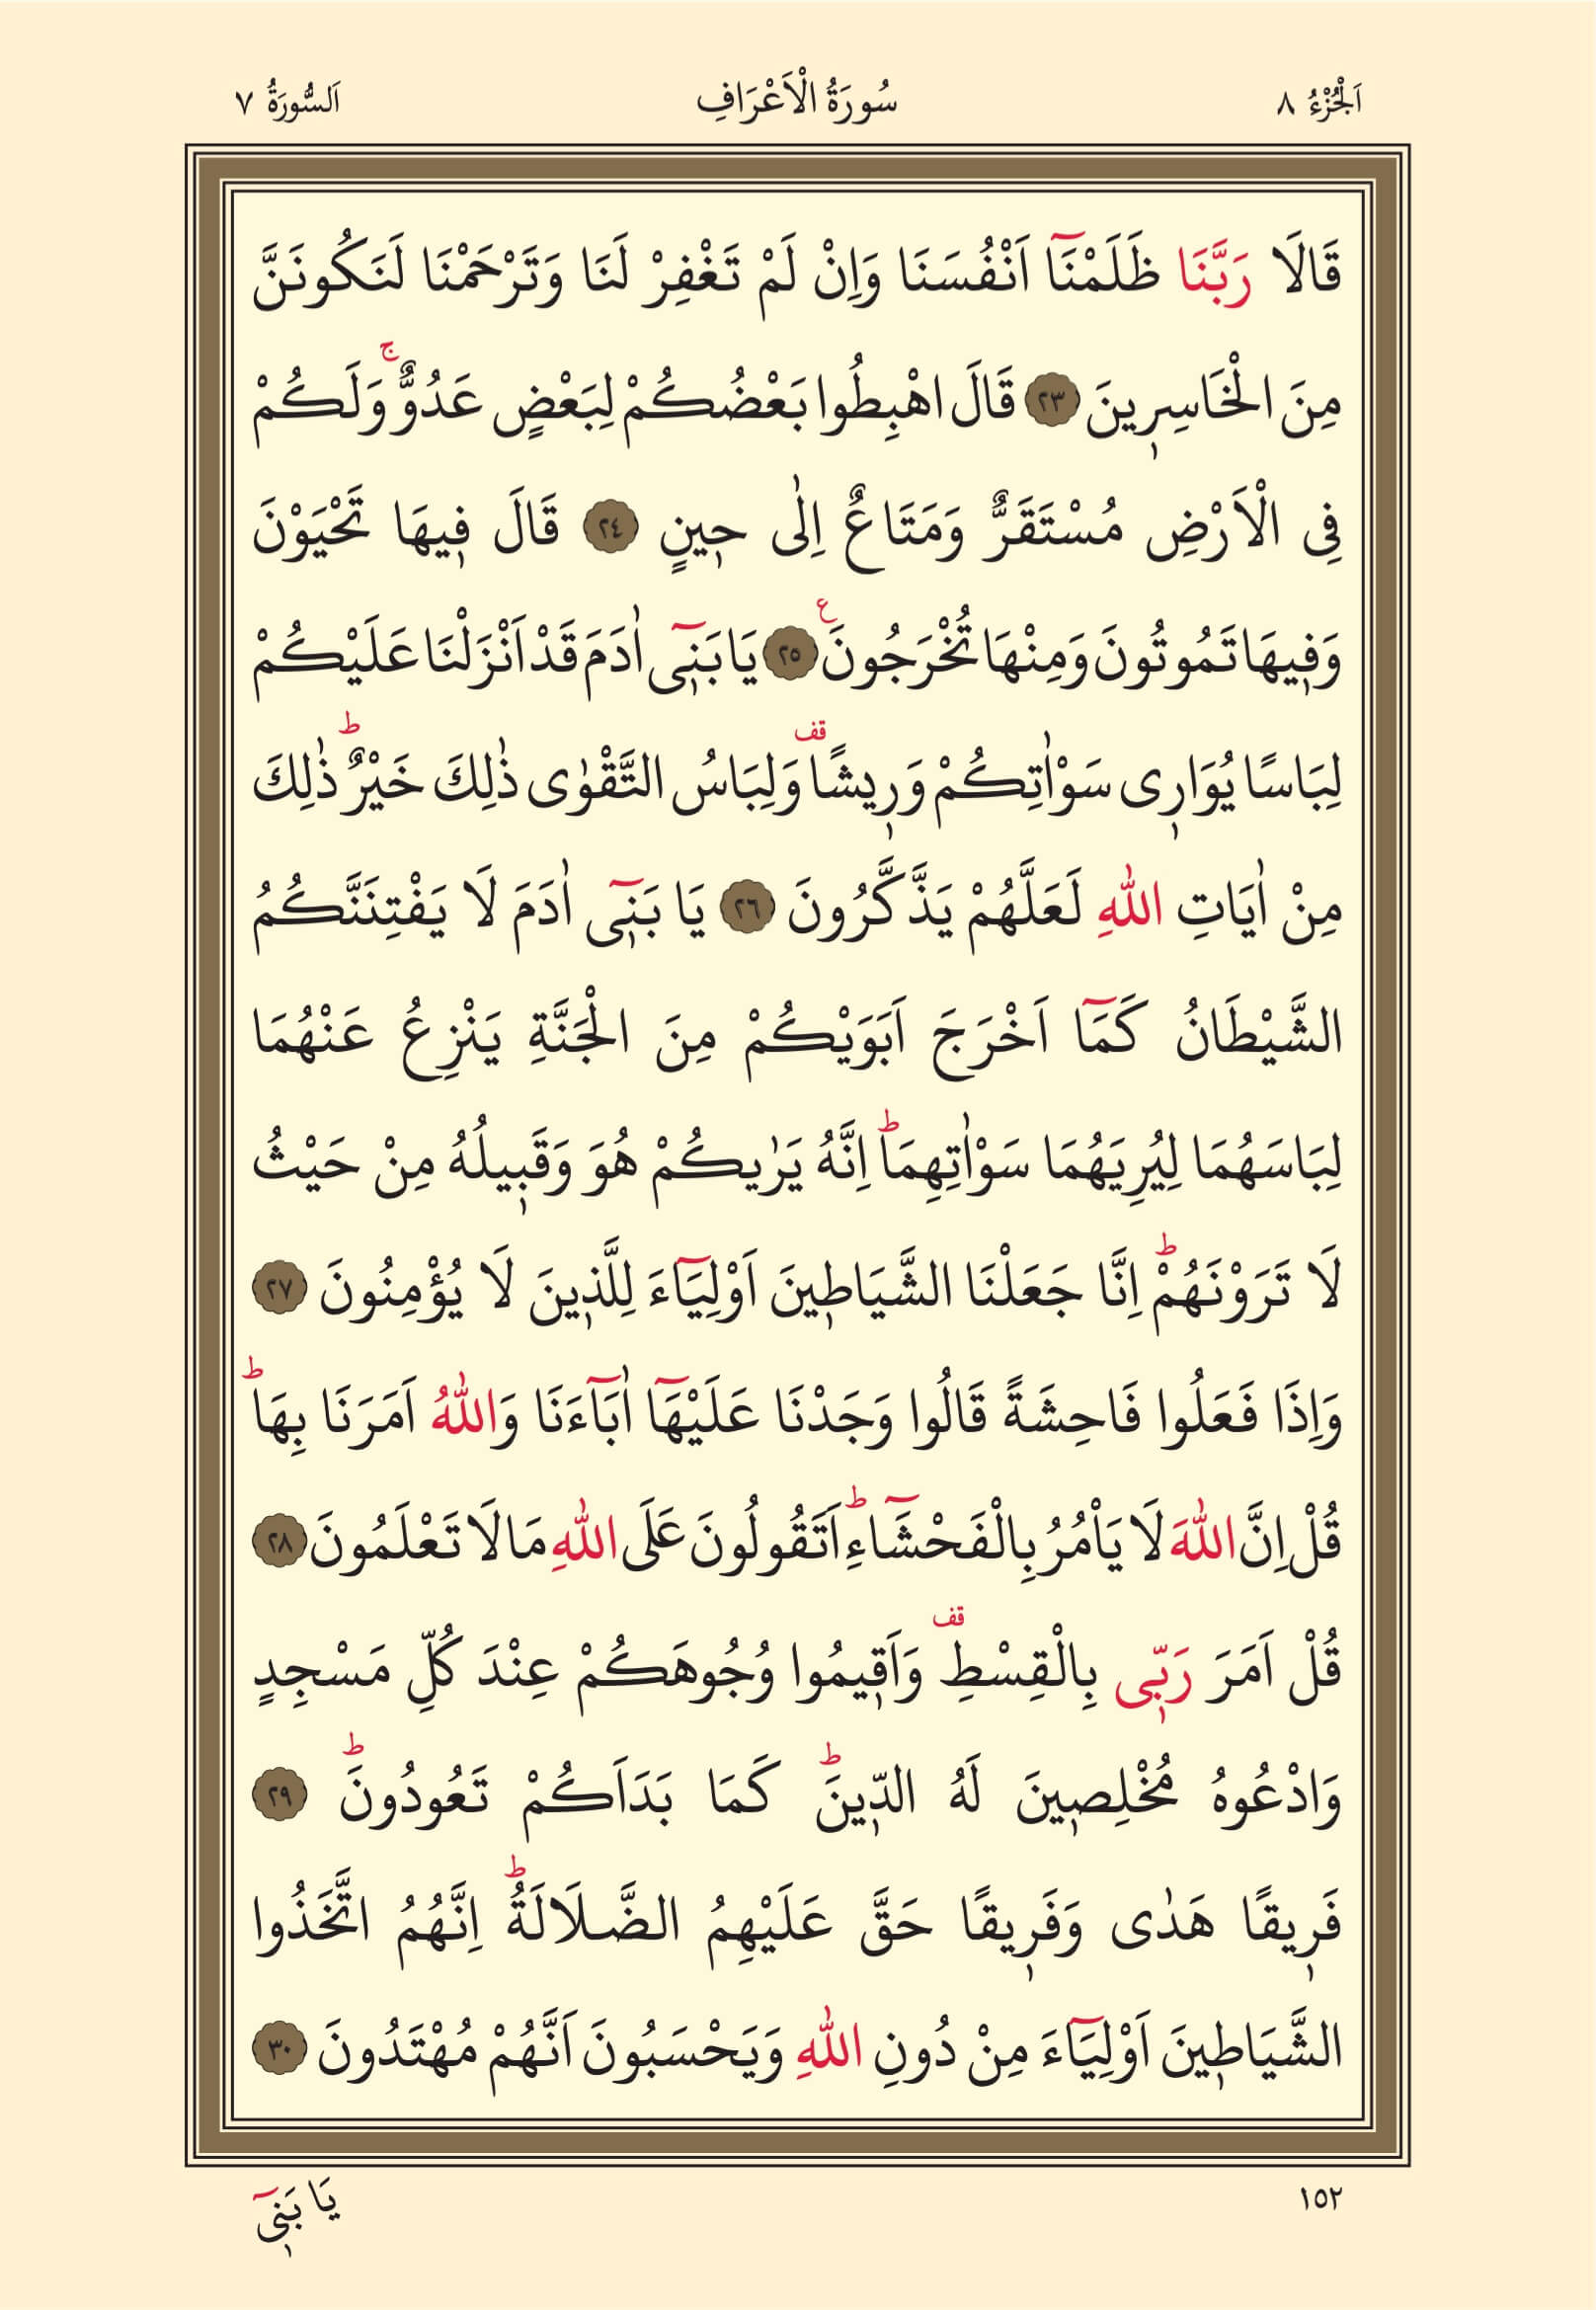 اَلْجُزْءُ ٨ سُورَةُ الْاَعْرَافِ اَلسُّورَةُ ٧
قَالَا رَبَّنَا ظَلَمْنَٓا اَنْفُسَنَا وَاِنْ لَمْ تَغْفِرْ لَنَا وَتَرْحَمْنَا لَنَكُونَنَّ
مِنَ الْخَاسِر۪ينَ ٢٣ قَالَ اهْبِطُوا بَعْضُكُمْ لِبَعْضٍ عَدُوٌّۚ وَلَكُمْ
فِى الْاَرْضِ مُسْتَقَرٌّ وَمَتَاعٌ اِلٰى ح۪ينٍ ٢٤ قَالَ ف۪يهَا تَحْيَوْنَ
وَف۪يهَا تَمُوتُونَ وَمِنْهَا تُخْرَجُونَ ع ٢٥ يَا بَن۪ٓى اٰدَمَ قَدْ اَنْزَلْنَا عَلَيْكُمْ
لِبَاسًا يُوَار۪ى سَوْاٰتِكُمْ وَر۪يشًا قف وَلِبَاسُ التَّقْوٰى ذٰلِكَ خَيْرٌؕ ذٰلِكَ
مِنْ اٰيَاتِ اللّٰهِ لَعَلَّهُمْ يَذَّكَّرُونَ ٢٦ يَا بَن۪ٓى اٰدَمَ لَا يَفْتِنَنَّكُمُ
الشَّيْطَانُ كَمَٓا اَخْرَجَ اَبَوَيْكُمْ مِنَ الْجَنَّةِ يَنْزِعُ عَنْهُمَا
لِبَاسَهُمَا لِيُرِيَهُمَا سَوْاٰتِهِمَاؕ اِنَّهُ يَرٰيكُمْ هُوَ وَقَب۪يلُهُ مِنْ حَيْثُ
لَا تَرَوْنَهُمْؕ اِنَّا جَعَلْنَا الشَّيَاط۪ينَ اَوْلِيَٓاءَ لِلَّذ۪ينَ لَا يُؤْمِنُونَ ٢٧
وَاِذَا فَعَلُوا فَاحِشَةً قَالُوا وَجَدْنَا عَلَيْهَٓا اٰبَٓاءَنَا وَاللّٰهُ اَمَرَنَا بِهَاؕ
قُلْ اِنَّ اللّٰهَ لَا يَاْمُرُ بِالْفَحْشَٓاءِؕ اَتَقُولُونَ عَلَى اللّٰهِ مَا لَا تَعْلَمُونَ ٢٨
قُلْ اَمَرَ رَبّ۪ى بِالْقِسْطِ قف وَاَق۪يمُوا وُجُوهَكُمْ عِنْدَ كُلِّ مَسْجِدٍ
وَادْعُوهُ مُخْلِص۪ينَ لَهُ الدّ۪ينَؕ كَمَا بَدَاَكُمْ تَعُودُونَؕ ٢٩
فَر۪يقًا هَدٰى وَفَر۪يقًا حَقَّ عَلَيْهِمُ الضَّلَالَةُؕ اِنَّهُمُ اتَّخَذُوا
الشَّيَاط۪ينَ اَوْلِيَٓاءَ مِنْ دُونِ اللّٰهِ وَيَحْسَبُونَ اَنَّهُمْ مُهْتَدُونَ ٣٠
١٥٢ يَا بَن۪ٓى